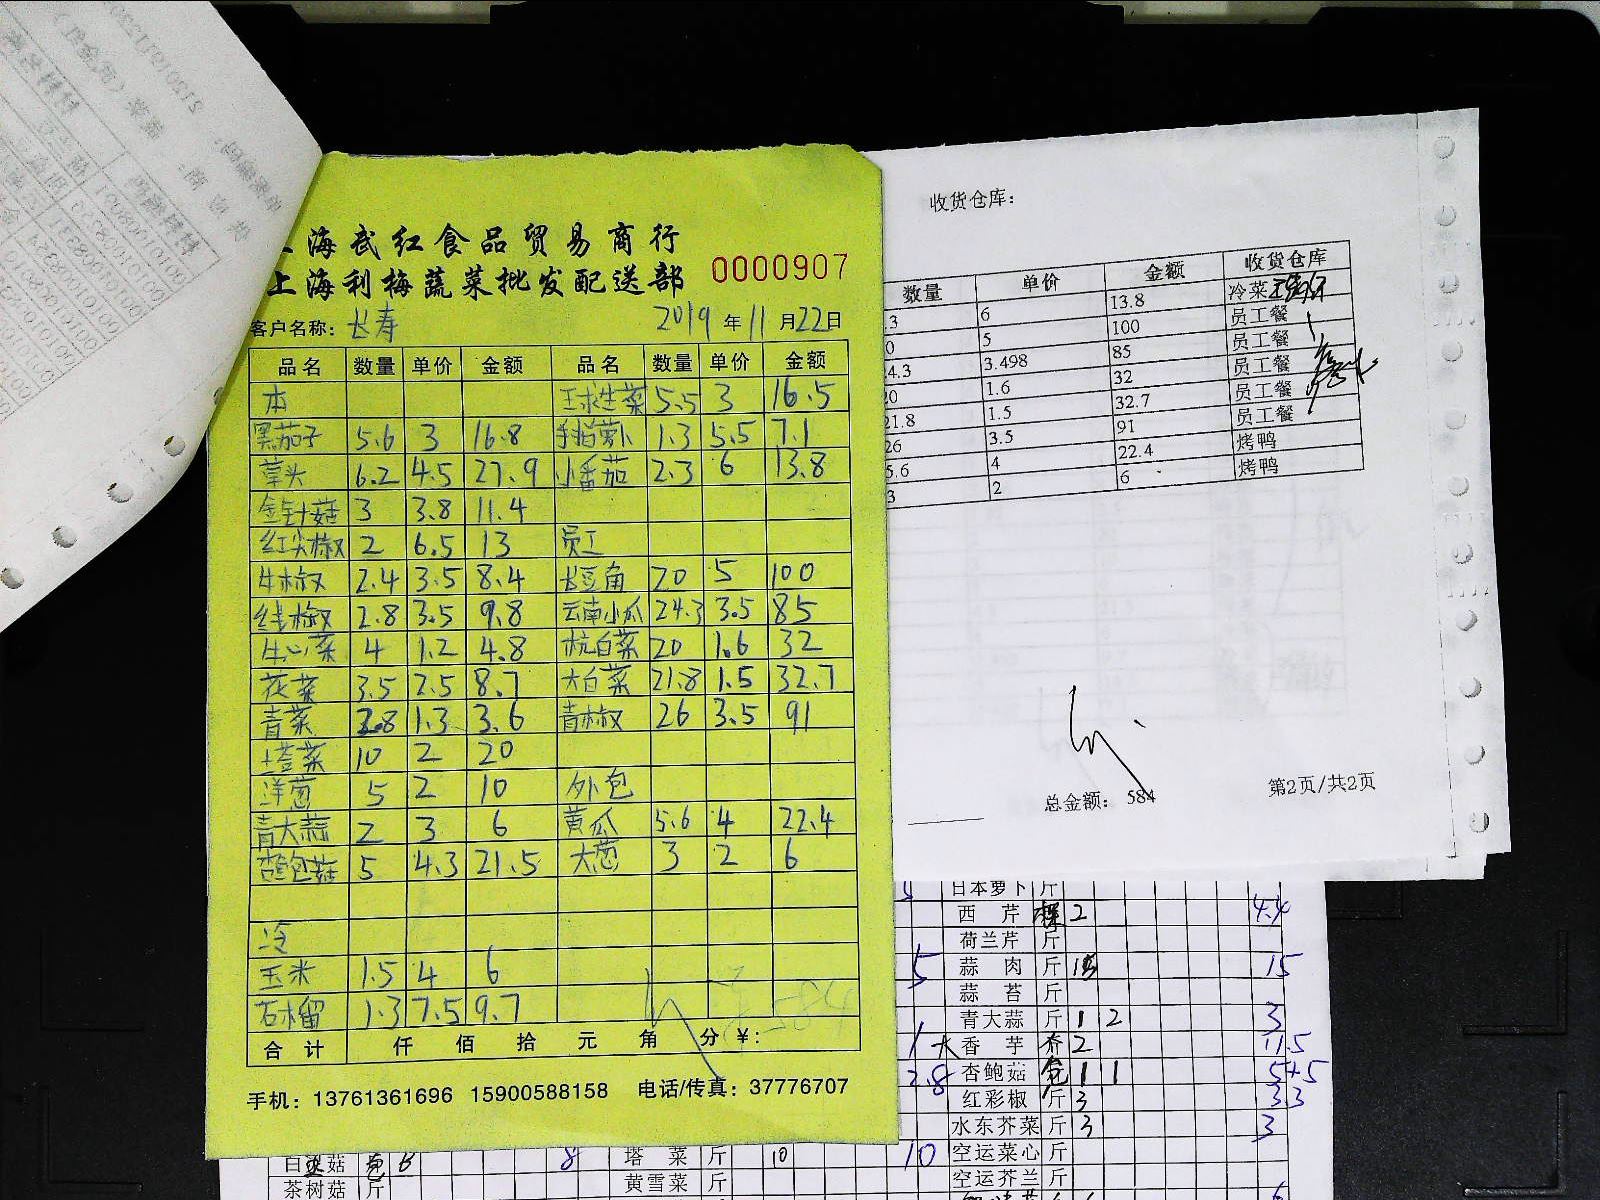 上海武红食品贸易商行
上海利梅蔬菜批发配送部 0000907
客户名称: 长寿 2019 年 11 月 22 日
品名 数量 单价 金额 品名 数量 单价 金额
本 玉球生菜 5.5 3 16.5
黑茄子 5.6 3 16.8 手指萝卜 1.3 5.5 7.1
草头 6.2 4.5 27.9 小番茄 2.3 6 13.8
金针菇 3 3.8 11.4
红尖椒 2 6.5 13 员工
牛椒 2.4 3.5 8.4 长豆角 20 5 100
线椒 2.8 3.5 9.8 云南小瓜 24.3 3.5 85
牛心菜 4 1.2 4.8 杭白菜 20 1.6 32
花菜 3.5 2.5 8.7 大白菜 21.8 1.5 32.7
青菜 2.8 1.3 3.6 青椒 26 3.5 91
塔菜 10 2 20
洋葱 5 2 10 外包
青大蒜 2 3 6 黄瓜 5.6 4 22.4
杏包菇 5 4.3 21.5 大葱 3 2 6
冷
玉米 1.5 4 6
石榴 1.3 7.5 9.7
584
合计 仟 佰 拾 元 角 分 ¥:
手机: 13761361696 15900588158 电话/传真: 37776707
收货仓库:
数量 单价 金额 收货仓库
.3 6 13.8 冷菜
0 5 100 员工餐
4.3 3.498 85 员工餐
20 1.6 32 员工餐
21.8 1.5 32.7 员工餐
26 3.5 91 员工餐
5.6 4 22.4 烤鸭
3 2 6 烤鸭
总金额: 584
第2页/共2页
日本萝卜 斤
西芹 棵 2 4.4
荷兰芹 斤
5 蒜肉 斤 15 15
蒜苔 斤
青大蒜 斤 1 2 3
1 大香芋 斤 2 11.5
2.8 杏鲍菇 包 1 1 5+5
红彩椒 斤 3 3.3
水东芥菜 斤 3 3
白灵菇 包 6 8 塔菜 斤 10 10 空运菜心 斤
茶树菇 斤 黄雪菜 斤 空运芥兰 斤